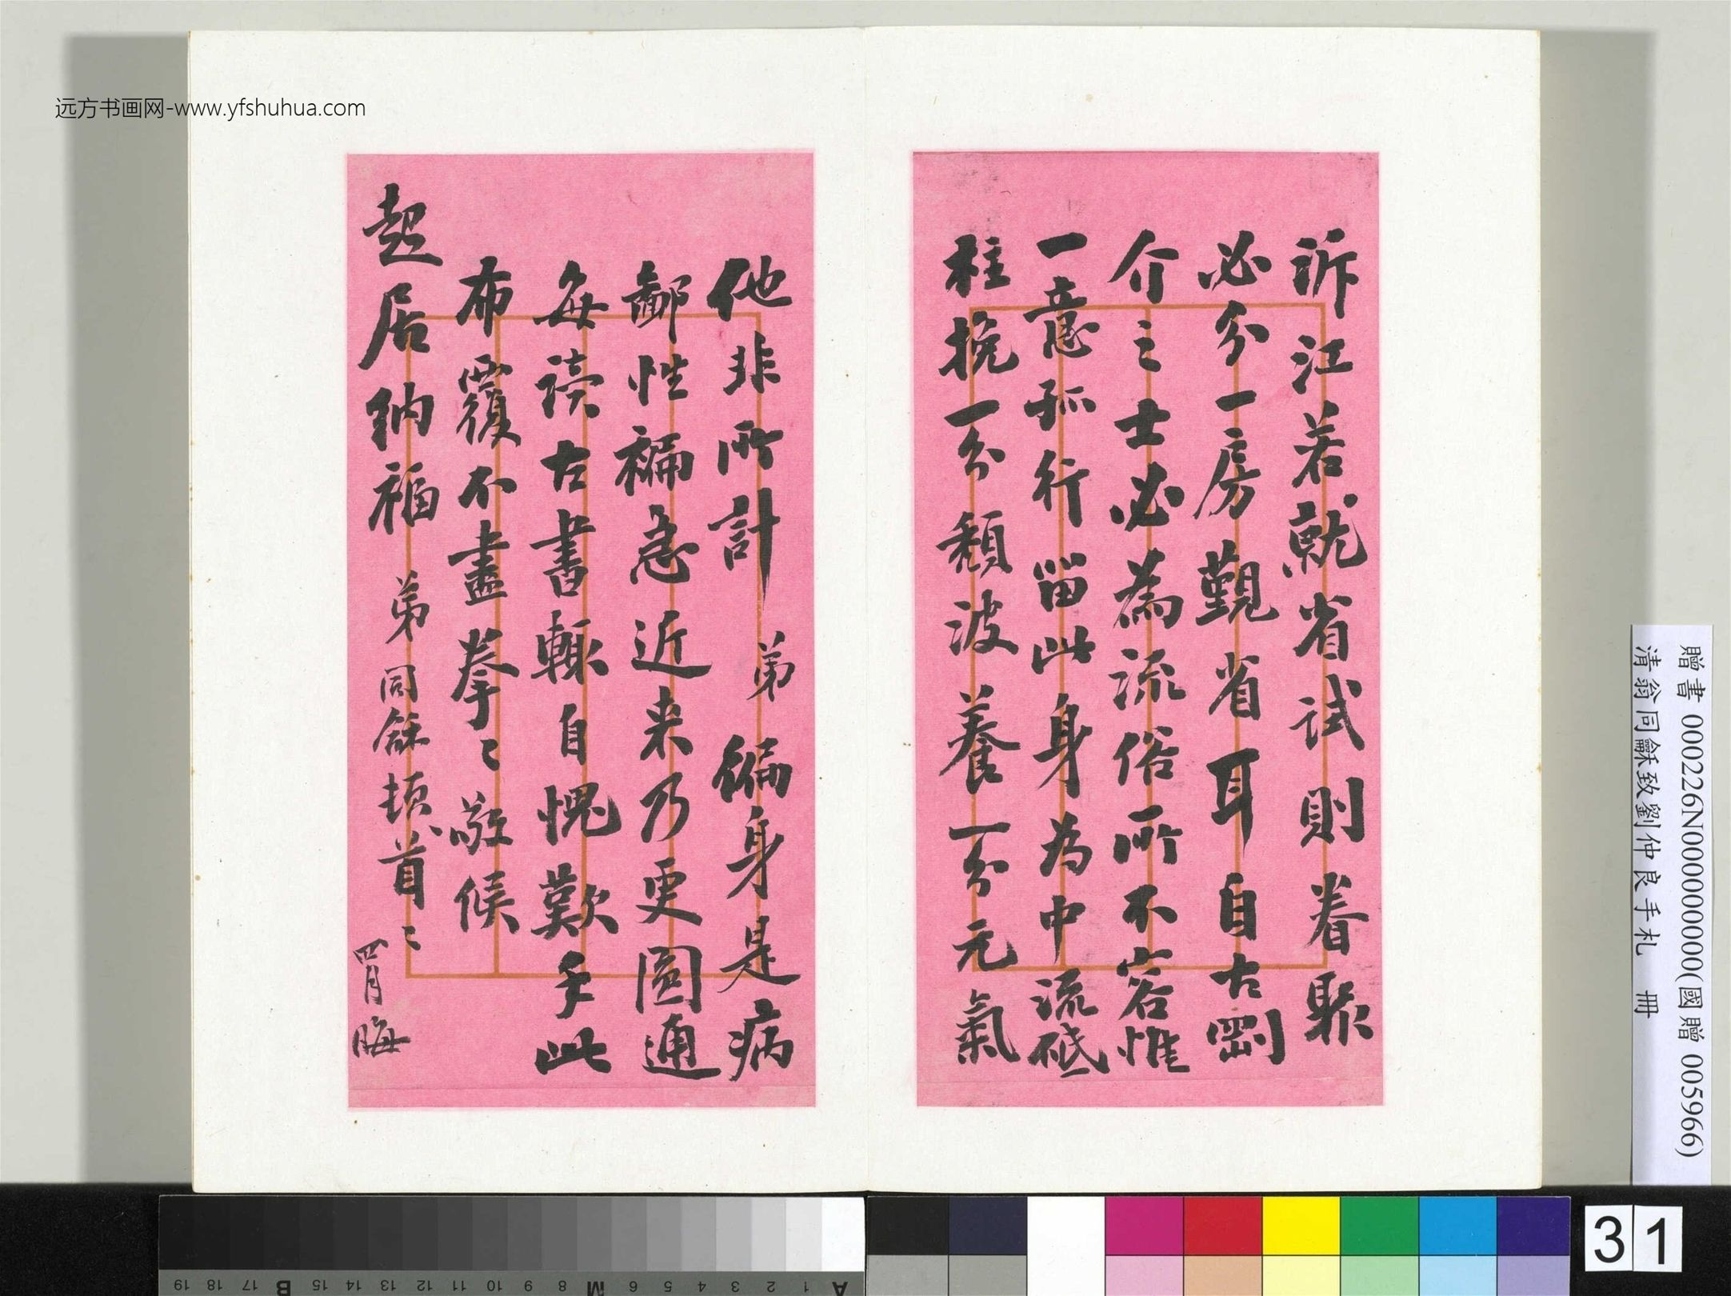 远方书画网-www.yfshuhua.com
泝江若就省试則眷聚
必分一房觐省耳自古剛
介之士必為流俗所不容惟
一意孤行留此身為中流砥
柱挽一分頹波養一分元氣
他非所計弟徧身是病
鄙性褊急近来乃更圓通
每读左書輒自愧歎手此
布覆不盡拳〻敬候
起居纳福 弟同龢顿首〻
四月晦
贈書 000226N000000000(國贈 005966)
清翁同龢致劉仲良手札 冊
31
A 1 2 3 4 5 6 M 8 9 10 11 12 13 14 15 B 17 18 19